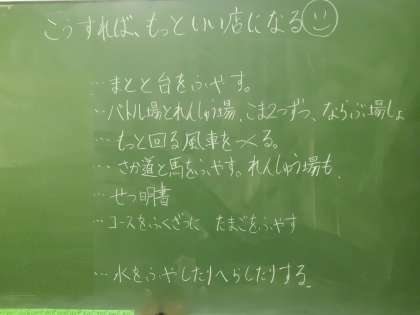 こうすれば、もっといい店になる
…まとと台をふやす。
…バトル場とれんしゅう場、こま2つずつ、ならぶ場しょ
…もっと回る風車をつくる。
…さか道と馬をふやす。れんしゅう場も、
…せつ明書
…コースをふくざつに たまごをふやす
…水をふやしたりへらしたりする。